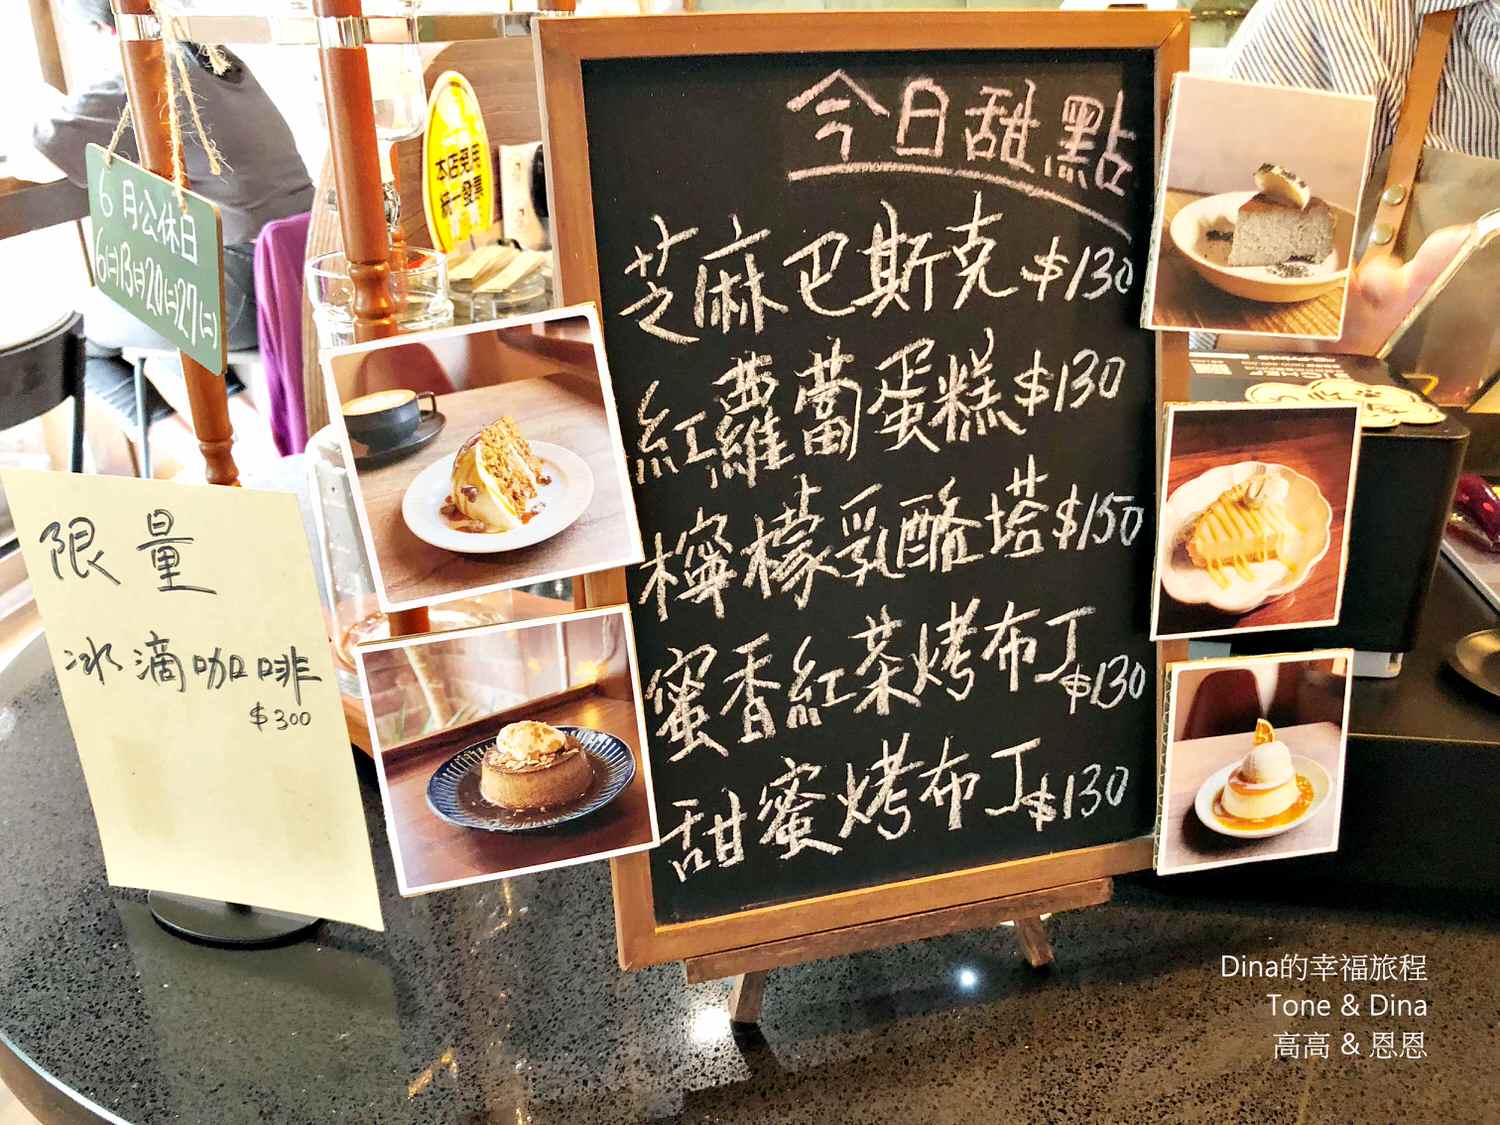 6月公休日
6(二)13(二)20(二)27(二)
本店免用
統一發票
限量
冰滴咖啡
$300
今日甜點
芝麻巴斯克$130
紅蘿蔔蛋糕$130
檸檬乳酪塔$150
蜜香紅茶烤布丁$130
甜蜜烤布丁$130
Dina的幸福旅程
Tone & Dina
高高 & 恩恩